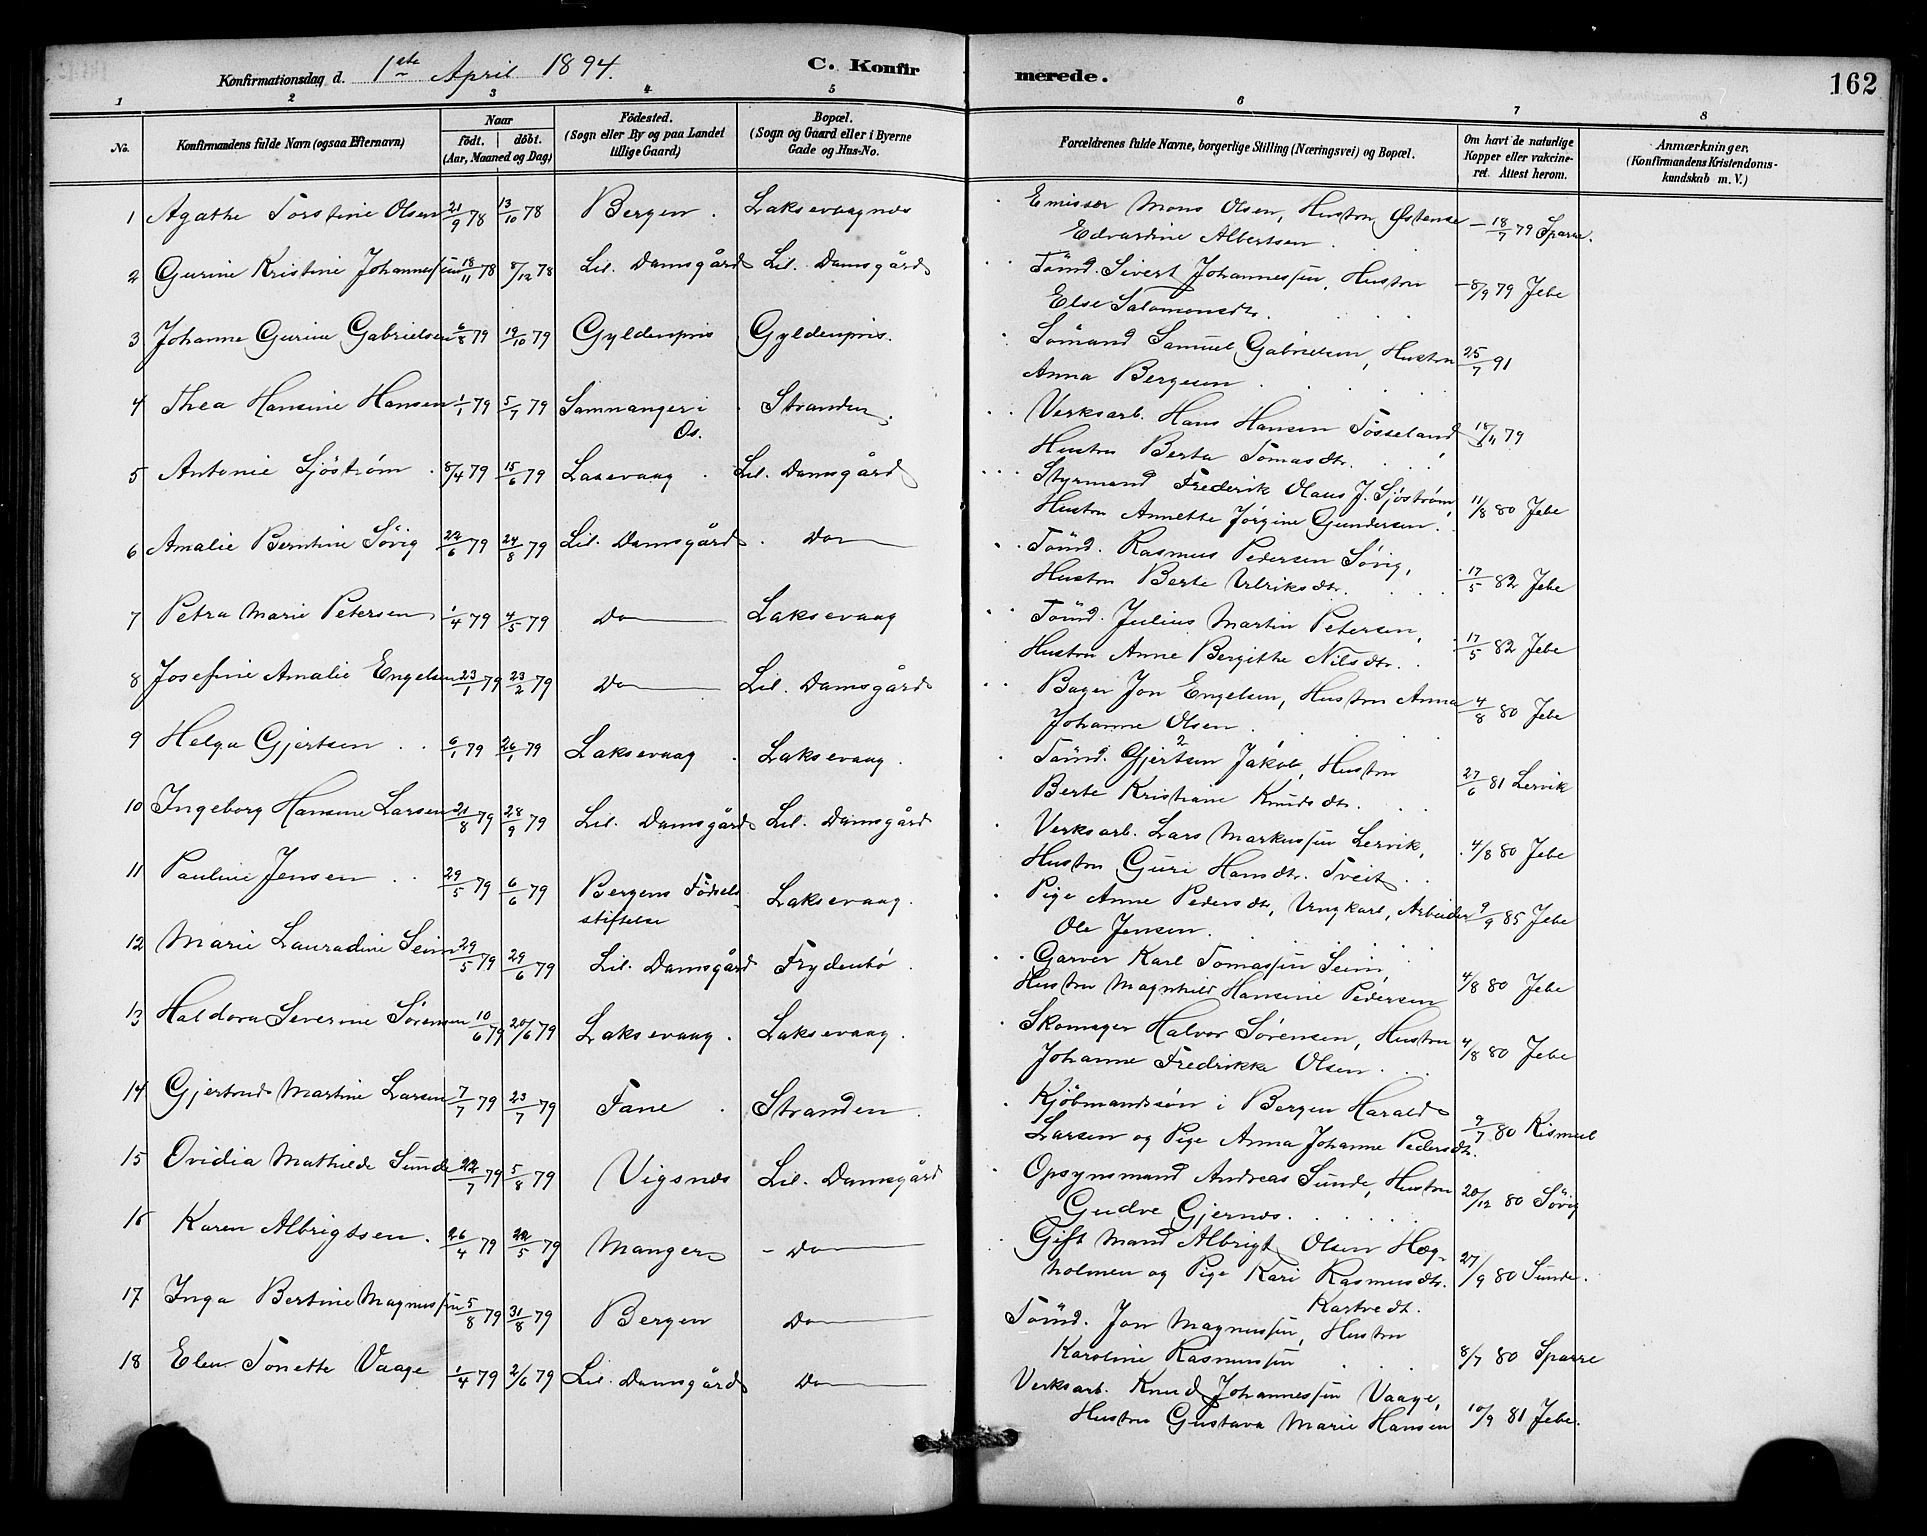 Konfirmationsdag d. 1ste April 1894. C. Konfirmerede. 162
1 2 3 4 5 6 7 8
No. Konfirmandens fulde Navn (ogsaa Efternavn) Naar født. døbt. (Aar, Maaned og Dag) Födested. (Sogn eller By og paa Landet tillige Gaard) Bopæl. (Sogn og Gaard eller i Byerne Gade og Hus-No. Forældrenes fulde Navne, borgerlige Stilling (Næringsvei) og Bopæl. Om havt de naturlige Kopper eller vakcineret. Attest herom. Anmærkninger. (Konfirmandens Kristendomskundskab m. V.)
1 Agathe Torstine Olsen 21/9 78 13/10 78 Bergen. Laksevaagnes Emissær Mons Olsen, Hustru Østense
Edvardine Albertsen. 18/7 79 Sparre.
2 Gurine Kristine Johannessen 18/11 78 8/12 78 Lil. Damsgård Lil. Damsgård Tömd. Sivert Johannessen, Hustru
Else Salomonsdtr. 8/9 79 Jebe
3 Johanne Gurine Gabrielsen 6/8 79 19/10 79 Gyldenpris Gyldenpris. Sömand Samuel Gabrielsen, Hustru
Anna Bergesen 25/7 91
4 Thea Hansine Hansen 1/1 79 5/7 79 Samnanger i
Os. Stranden. Verksarb. Hans Hansen Tösseland,
Hustru Berta Tomasdtr. 18/11 79
5 Antonie Sjöstrøm. 8/4 79 15/6 79 Laxevaag. Lil. Damsgård Styrmand Frederik Olaus J. Sjöstrøm,
Hustru Annette Jørgine Gundersen. 11/8 80 Jebe
6 Amalie Berntine Sövig 22/6 79 24/8 79 Lil. Damsgård. Do Tömd. Rasmus Pedersen Sövig,
Hustru Berte Ulriksdtr. 17/5 82 Jebe
7 Petra Marie Petersen 1/4 79 4/5 79 Do Laksevaag Tömd. Julius Martin Petersen,
Hustru Anne Bergitte Nilsdtr. 17/5 82 Jebe
8 Josefine Amalie Engelsen 23/1 79 23/2 79 Do Lil. Damsgård Bager Jon Engelsen, Hustru Anna
Johanne Olsen. 4/8 80 Jebe
9 Helga Gjertsen 6/1 79 26/1 79 Laksevaag. Laksevaag. Tömd. Gjertsen Jakob, Hustru
Berte Kristiane Knudsdtr. 27/6 81 Lervik
10 Ingeborg Hansine Larsen 21/8 79 28/9 79 Lil. Damsgård Lil. Damsgård Verksarb. Lars Markussen Lervik,
Hustru Guri Hansdtr. Tveit. 4/8 80 Jebe
11 Pauline Jensen 29/5 79 6/6 79 Bergens Fødsels-
stiftelse Laksevaag. Pige Anne Pedersdtr, Ungkarl, Arbeider
Ole Jensen. 9/9 85 Jebe
12 Marie Lauradine Seim 29/5 79 29/6 79 Lil. Damsgård Frydenbø. Garver Karl Tomassen Seim,
Hustru Magnhild Hansine Pedersen 4/8 80 Jebe
13 Haldora Severine Sörensen 10/6 79 20/6 79 Laksevaag. Laksevaag. Skomager Halvor Sörensen, Hustru
Johanne Fredrikke Olsen. 4/8 80 Jebe
14 Gjertrud Martine Larsen 7/7 79 23/7 79 Fane. Stranden. Kjöbmandssön i Bergen Harald
Larsen og Pige Anna Johanne Pedersdtr. 9/7 80 Rismeel
15 Ovidia Mathilde Sunde 22/7 79 5/8 79 Vigsnes Lil. Damsgård Opsynsmand Andreas Sunde, Hustru
Gudve Gjernes. 20/12 80 Sövig
16 Karen Albrigtsen. 26/4 79 22/5 79 Manger Do Gift Mand Albrigt Olsen Hæg-
holmen og Pige Kari Rasmusdtr.
Kartvedt. 27/9 80 Sunde.
17 Inga Bertine Magnussen 5/8 79 31/8 79 Bergen Do Tömd. Jon Magnussen, Hustru
Karoline Rasmussen 8/7 80 Sparre
18 Elen Tonette Vaage 1/4 79 2/6 79 Lil. Damsgård Do Verksarb. Knud Johannessen Vaage,
Hustru Gustava Marie Hansen 10/9 81 Jebe.